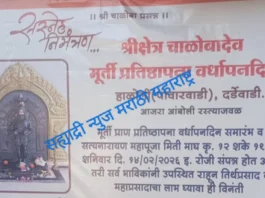 ।। श्री चाळोबा प्रसन्न ।।
सस्नेह
निमंत्रण...
श्रीक्षेत्र चाळोबादेव
मूर्ती प्रतिष्ठापना वर्धापनदि
हाळोली (पाचारवाडी), दर्डेवाडी.
आजरा आंबोली रस्त्याजवळ
मूर्ती प्राण प्रतिष्ठापना वर्धापनदिन समारंभ व
सत्यनारायण महापूजा मिती माघ कृ. १२ शके १९
शनिवार दि. १४/०२/२०२६ इ. रोजी संपन्न होत अ
तरी सर्व भाविकांनी उपस्थित राहून तिर्थप्रसाद
महाप्रसादाचा लाभ घ्यावा ही विनंती
सह्याद्री न्युज मराठी महाराष्ट्र